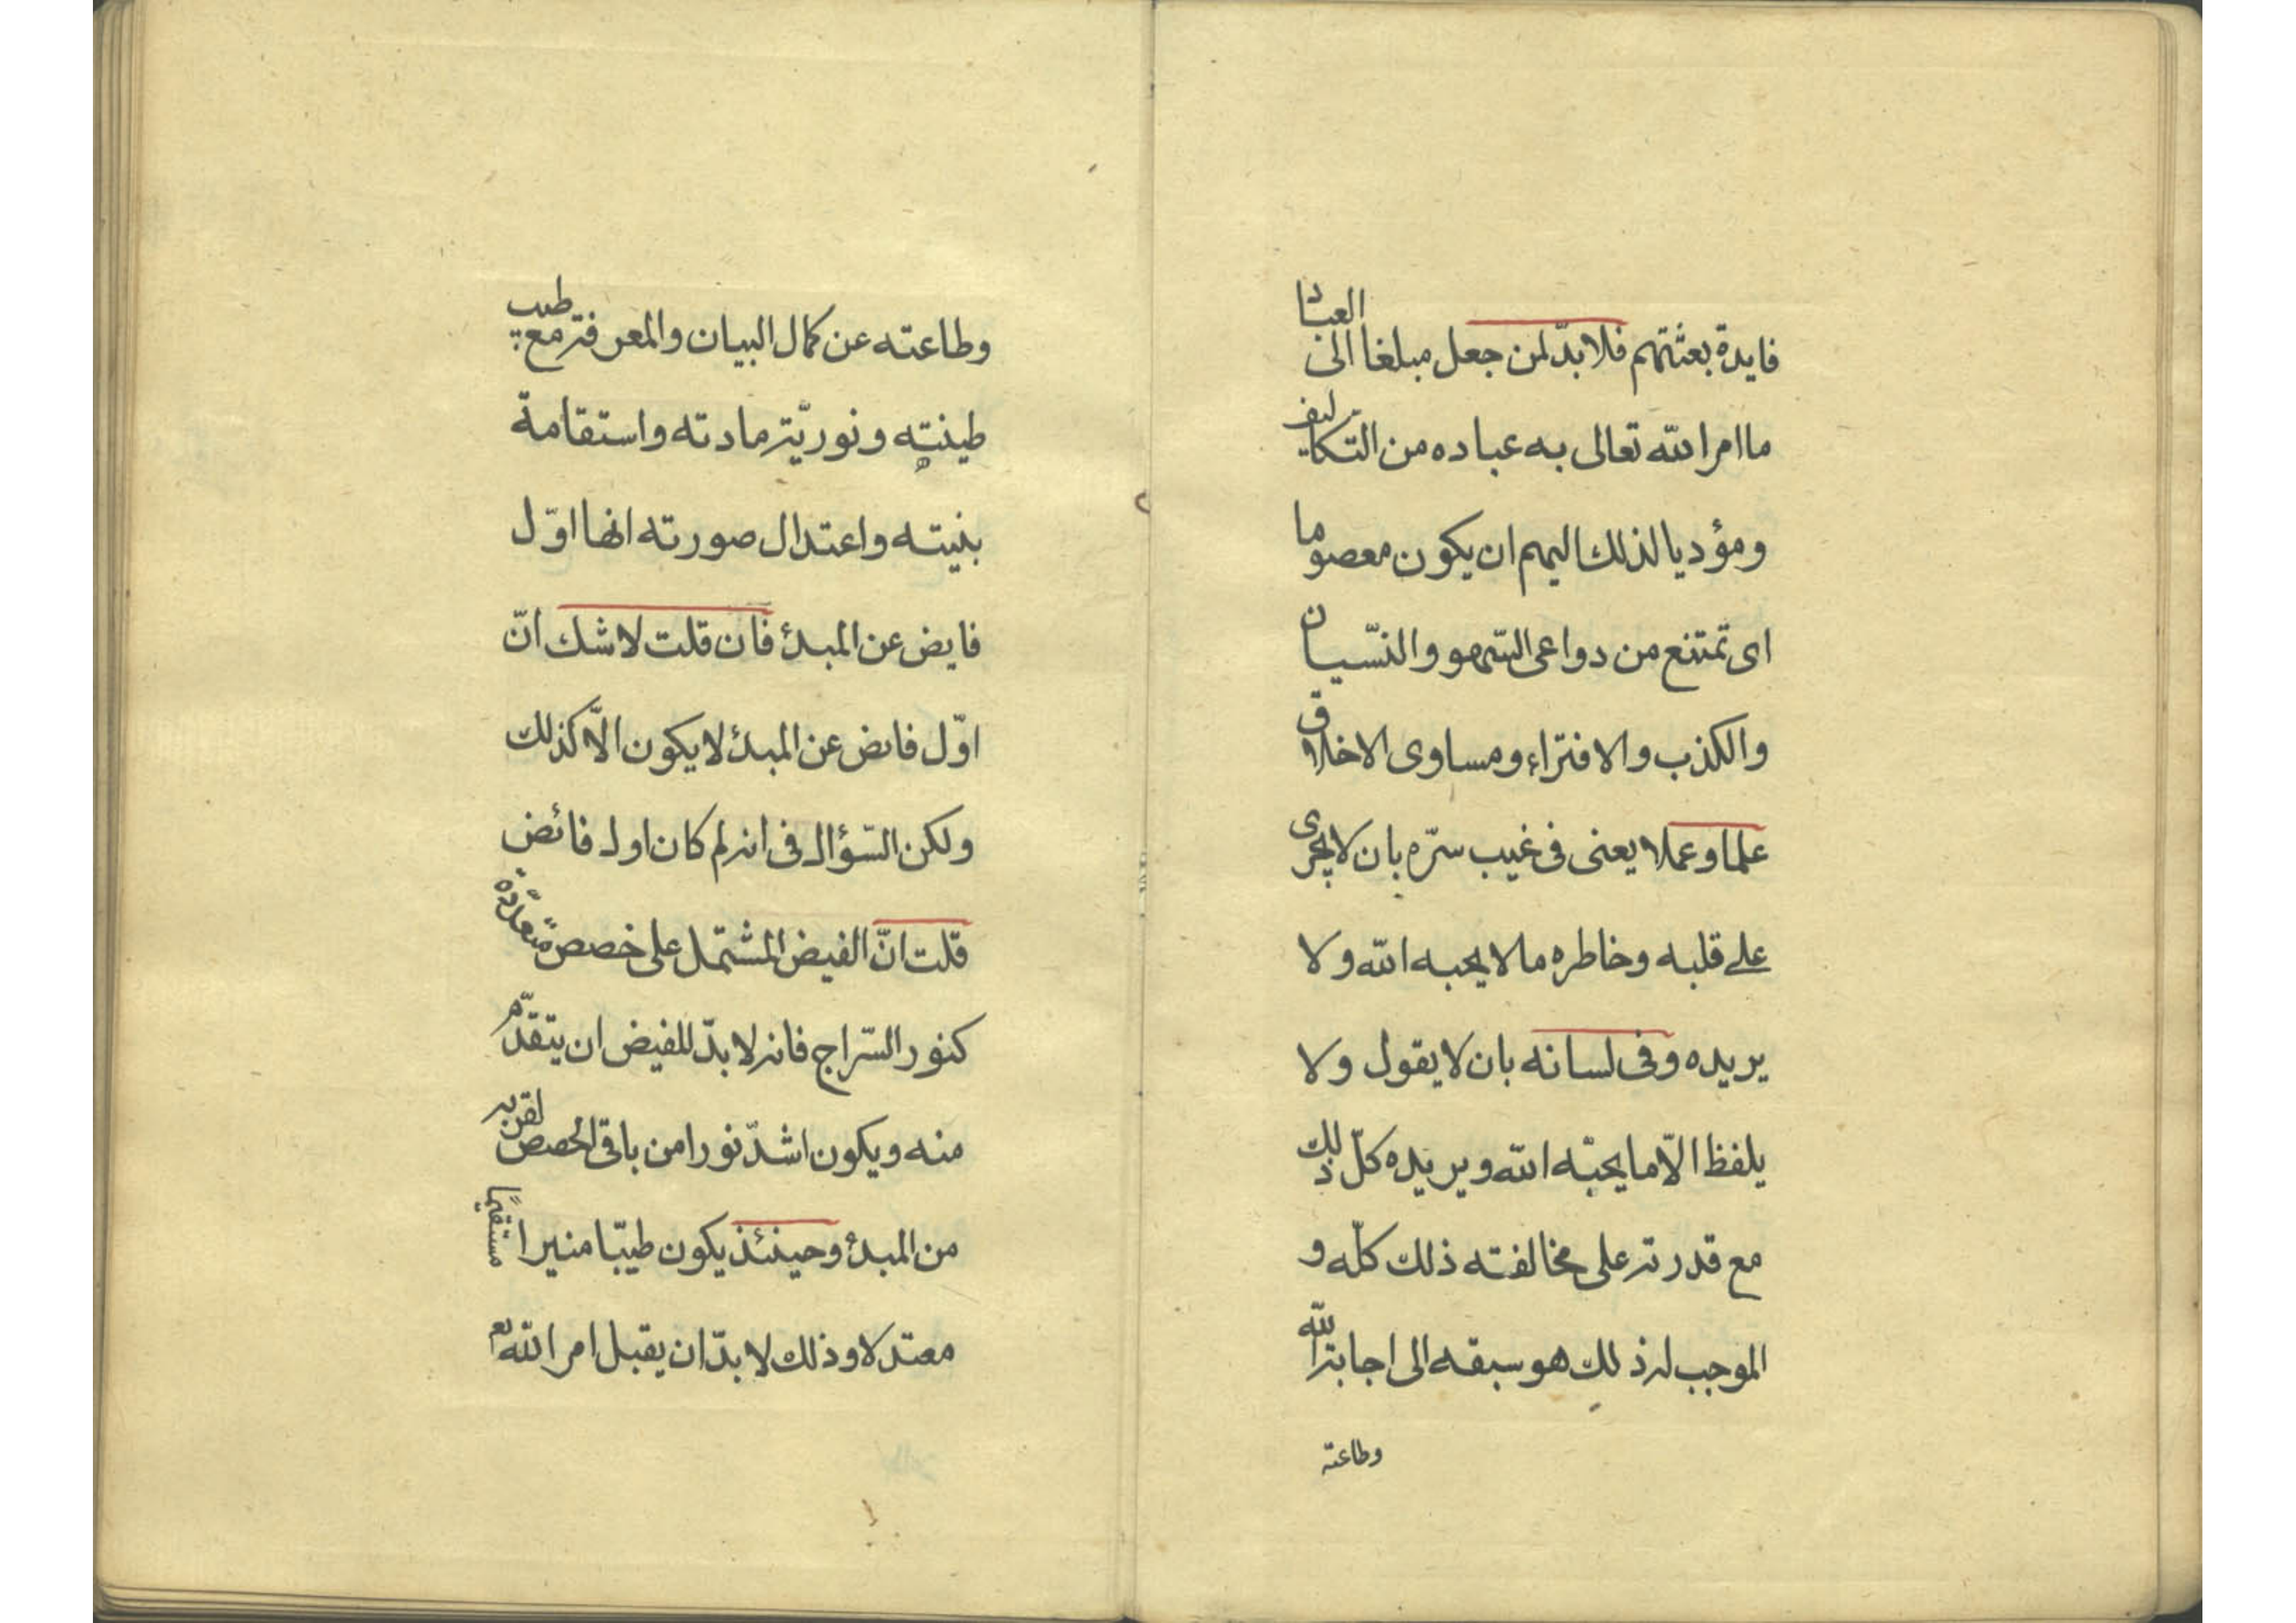 فايدة بعثتهم فلا بدّ لمن جعل مبلغا الى العباد
ما امر الله تعالى به عباده من التكاليف
ومؤديا لذلك اليهم ان يكون معصوما
اى تمتنع من دواعى السّهو والنّسيان
والكذب والافتراء ومساوى الاخلاق
علما وعملا يعنى فى غيب سرّه بان لا يجرى
على قلبه وخاطره ما لا يحبه الله ولا
يريده وفى لسانه بان لا يقول ولا
يلفظ الّا ما يحبّه الله ويريده كلّ ذلك
مع قدرته على مخالفته ذلك كلّه و
الموجب له ذلك هو سبقه الى اجابة الله
وطاعته
وطاعته عن كمال البيان والمعرفة مع طيب
طينته ونوريّة مادته واستقامة
بنيته واعتدال صورته انها اوّل
فايض عن المبدئ فان قلت لا شك انّ
اوّل فائض عن المبدئ لا يكون الّا كذلك
ولكن السّؤال فى انه لم كان اول فائض
قلت انّ الفيض المشتمل على حصص متعدّدة
كنور السّراج فانه لا بدّ للفيض ان يتقدّم
منه ويكون اشدّ نورا من باقى الحصص لقربه
من المبدئ وحينئذ يكون طيّبا منيرا مستقيمًا
معتدلا وذلك لا بدّ ان يقبل امر الله تع